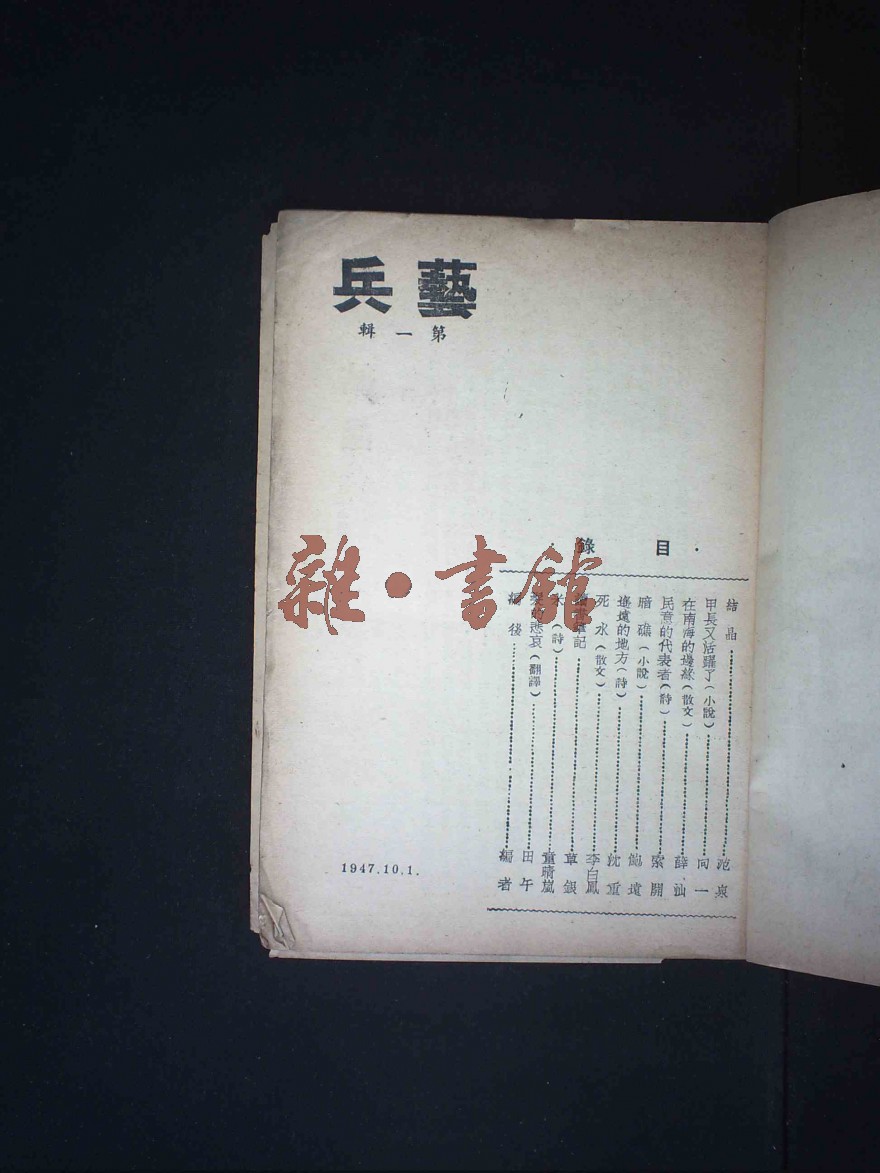 藝兵
第一輯
目錄
結晶 范泉
甲長又活躍了(小說) 向一
在南海的邊緣(散文) 薛汕
民意的代表者(詩) 索開
暗礁(小說) 遠
遙遠的地方(詩) 沈重
死水(散文) 李白鳳
筆記
(詩) 童晴嵐
的悲哀(翻譯) 田午
編後 編者
1947.10.1.
雜·書館